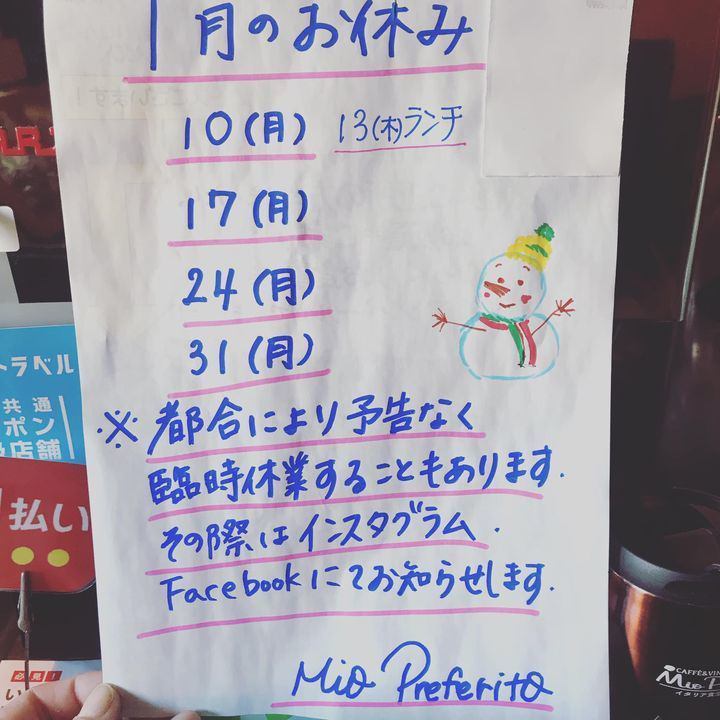 1月のお休み
10(月) 13(木)ランチ
17(月)
24(月)
31(月)
※都合により予告なく
臨時休業することもあります.
その際はインスタグラム.
Facebookにてお知らせします.
Mio Preferito
トラベル
共通
ポン
店舗
払い
必見!
い
CAFFÈ&VIN
Mio P
イタリア食
ございます!